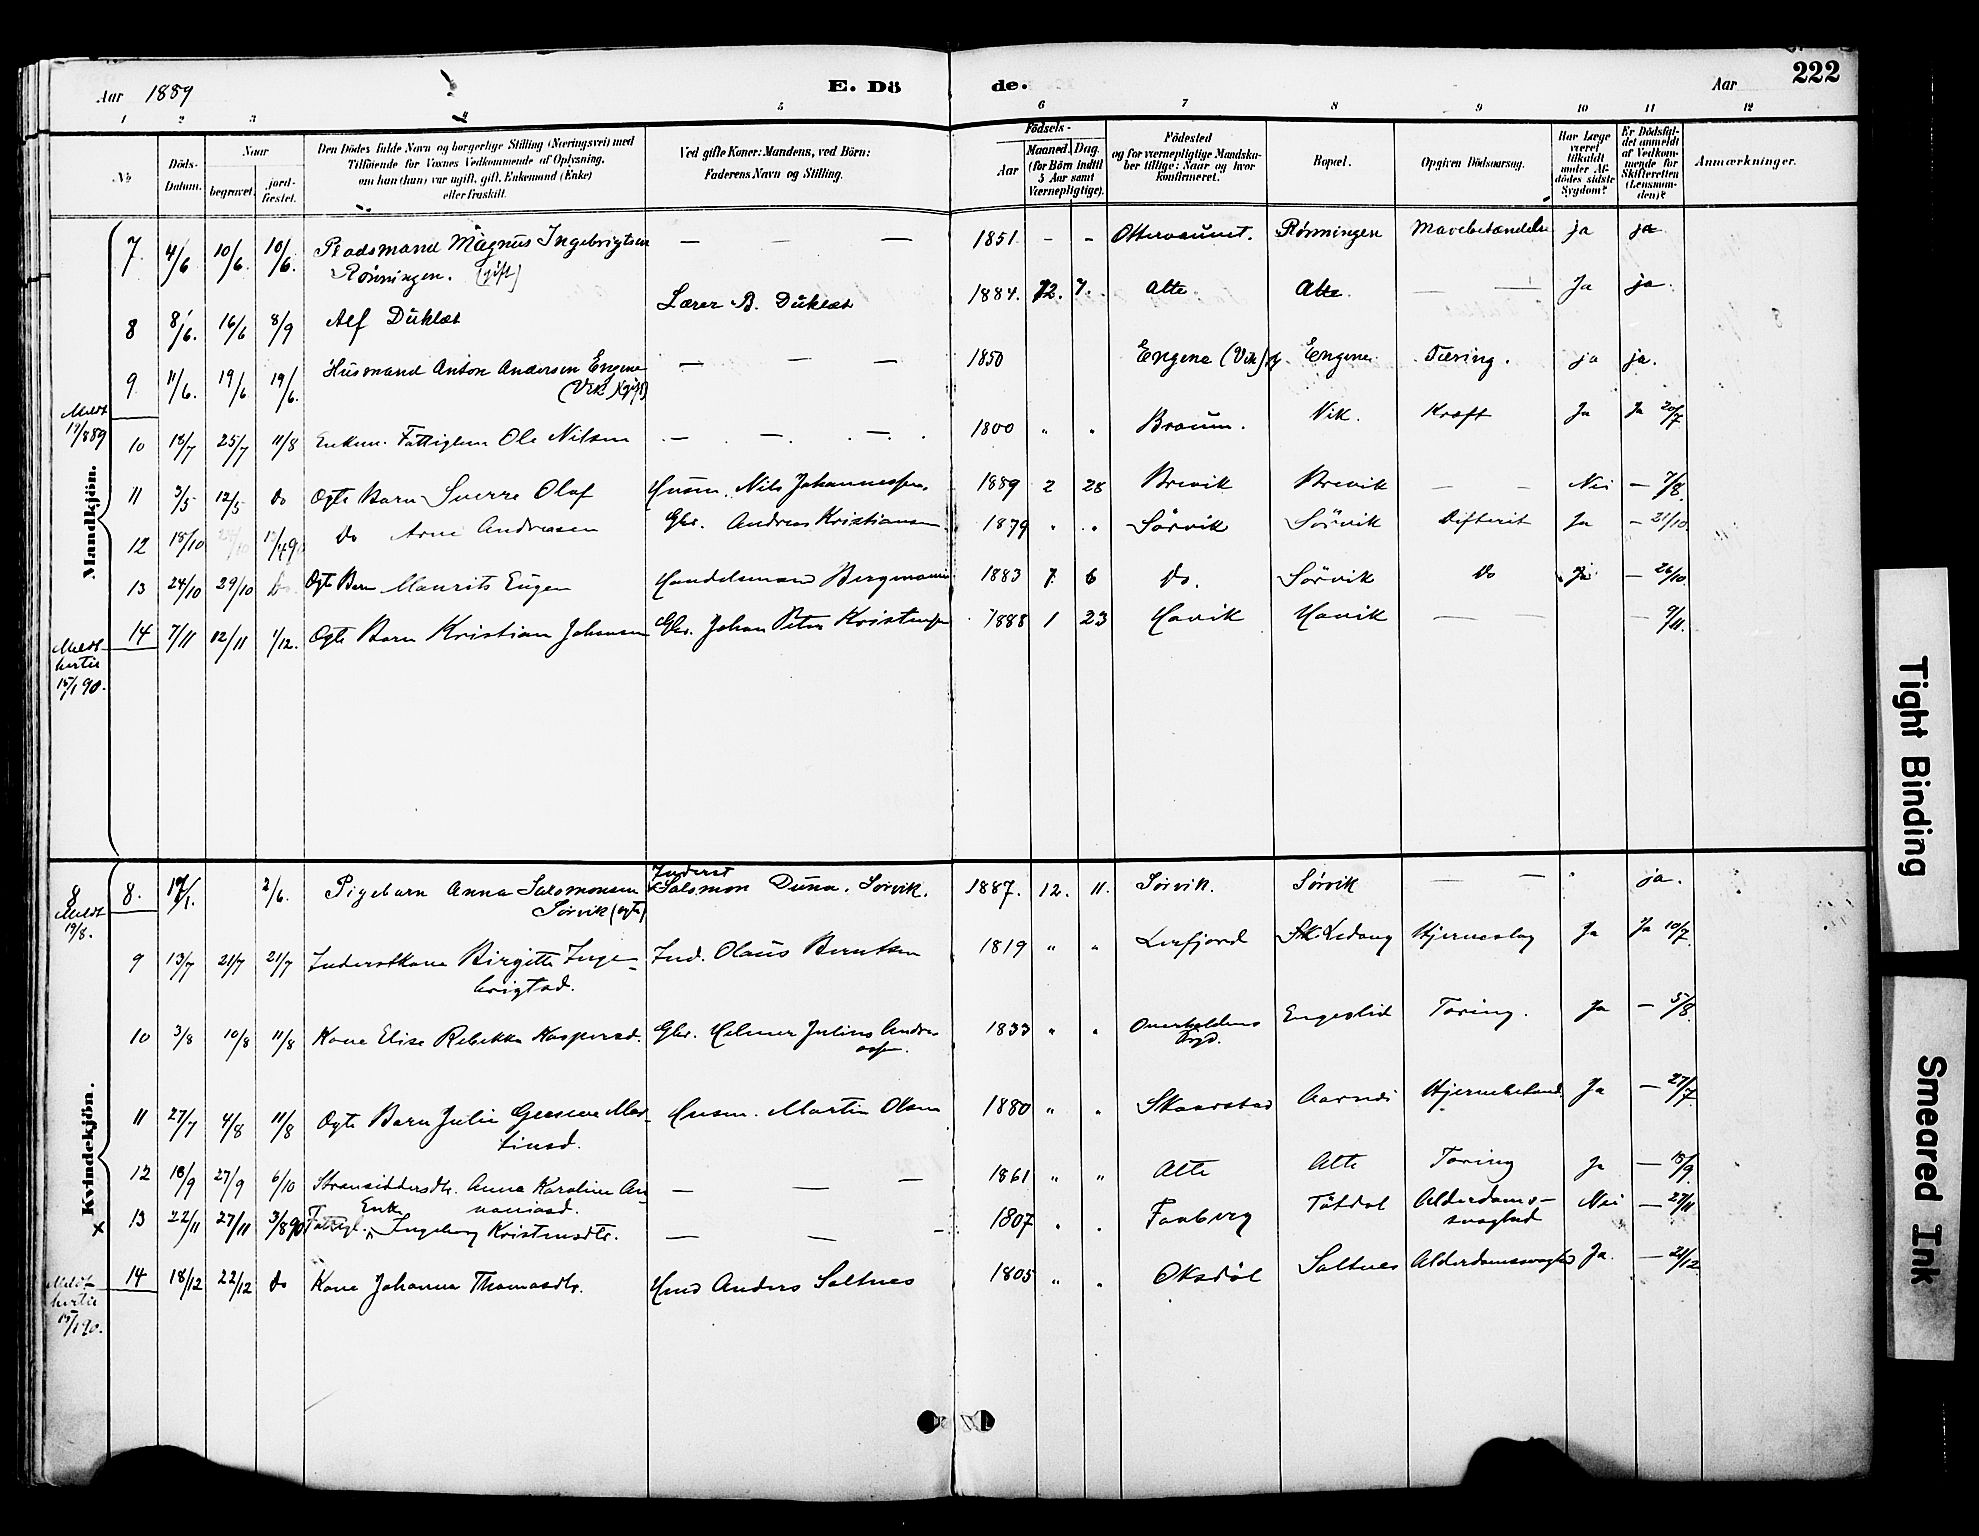 222
Aar 1889
E. Dö
de.
Aar
1 2 3 4 5 6 7 8 9 10 11 12
No
Döds-Datum.
Naar
begravet.
jord-fæstet.
Den Dödes fulde Navn og borgerlige Stilling (Næringsvei) med
Tilföiende for Voxnes Vedkommende af Oplysning,
om han (hun) var ugift, gift, Enkemand (Enke)
eller fraskilt.
Ved gifte Koner: Mandens, ved Börn:
Faderens Navn og Stilling.
Födsels-
Aar
Maaned. Dag.
(for Börn indtil
5 Aar samt
Værnepligtige).
Födested
og for værnepligtige Mandska-
ber tillige: Naar og hvor
konfirmeret.
Bopæl.
Opgiven Dödsaarsag.
Har Læge
været
tilkaldt
under Af-
dödes sidste
Sygdom?
Er Dödsfal-
det anmeldt
af Vedkom-
mende for
Skifteretten
(Lensman-
den)?
Anmærkninger.
Mandkjön.
7 4/6. 10/6. 10/6. Magnus Ingebrigtsen — — — 1851 - - Rönningen Mavebetændelse ja ja
Rönningen. (gift)
8 8/6. 16/6 8/9 Alf Duklæt Lærer B. Duklæt 1884. 12. 7. Alte Alte. — — Ja ja.
9 11/6. 19/6 19/6. Husmand Anton Andersen Engene — — — 1850 Engene (Vik) Engene Tæring. ja ja.
(Vik) (gift)
Meldt
17/889
10 18/7 25/7 11/8 Enkem. Fattiglem Ole Nilsen — — — 1800 " " Braum. Vik. Kræft Ja Ja 20/7
11 3/5 12/5 Do Ægte Barn Sverre Olaf Husm. Nils Johannessen. 1889 2 28 Brevik Brevik — — Nei — 7/8.
12 18/10 Do Arne Andreasen Gbr. Andreas Kristiansen 1879 " " Sörvik Sörvik Difterit Ja — 21/10
13 24/10 29/10 Do Ægte Barn Maurits Eugen Handelsmand Bergmann 1883 7. 6 Do. Sörvik Do Ja — 26/10.
14 7/11 12/11 1/12. Ægte Barn Kristian Johansen Gbr. Johan Peter Kristensen 1888 1 23 Havik Havik — — — 9/11.
Meldt
hertil
15/1 90.
Kvindekjön.
8
Meldt
19/8.
Inderst
8. 2/6. Pigebarn Anna Salomonsen Salomon Duna. Sörvik. 1887. 12. 11. Sörvik. Sörvik — — ja.
Sörvik (ægte)
9 13/7 21/7 21/7 Inderstkone Birgitte Inge- Ind. Olaus Berntsen 1819 " " Leirfjord Ledang Hjerneslag Ja Ja 10/7.
brigtsd.
10 3/8 10/8 11/8 Kone Elise Rebekka Kaspersd. Gbr. Helmer Julius Andre- 1833 " " Overhaldens Engeslid Tæring. Ja — 5/8.
assen. Prgd.
11 27/7 4/8 11/8 Ægte Barn Julie Gesine Mar- Husm. Martin Olsen 1880 " " Skaarstad Aarnes Ja — 27/7.
tinsd.
12 18/9 27/9 6/10 Strandsiddersdtr. Anna Karoline An- — — — 1861 " " Alte Alte Tæring Ja — 18/9.
naniasd.
x 13 22/11 27/11 3/890 Fattigl. Enk. Ingeborg Kristensdtr. — — — 1807 " " Faaberg Tötdal Alderdoms- Nei — 27/11
svaghed
14 18/12 22/12 Do Kone Johanna Thomasdtr. Hmd Anders Saltnes 1805 " " Oksdöl Saltnes Alderdomssvaghed Ja. — 21/12.
Meldt
hertil
15/1 90.
Tight Binding
Smeared Ink